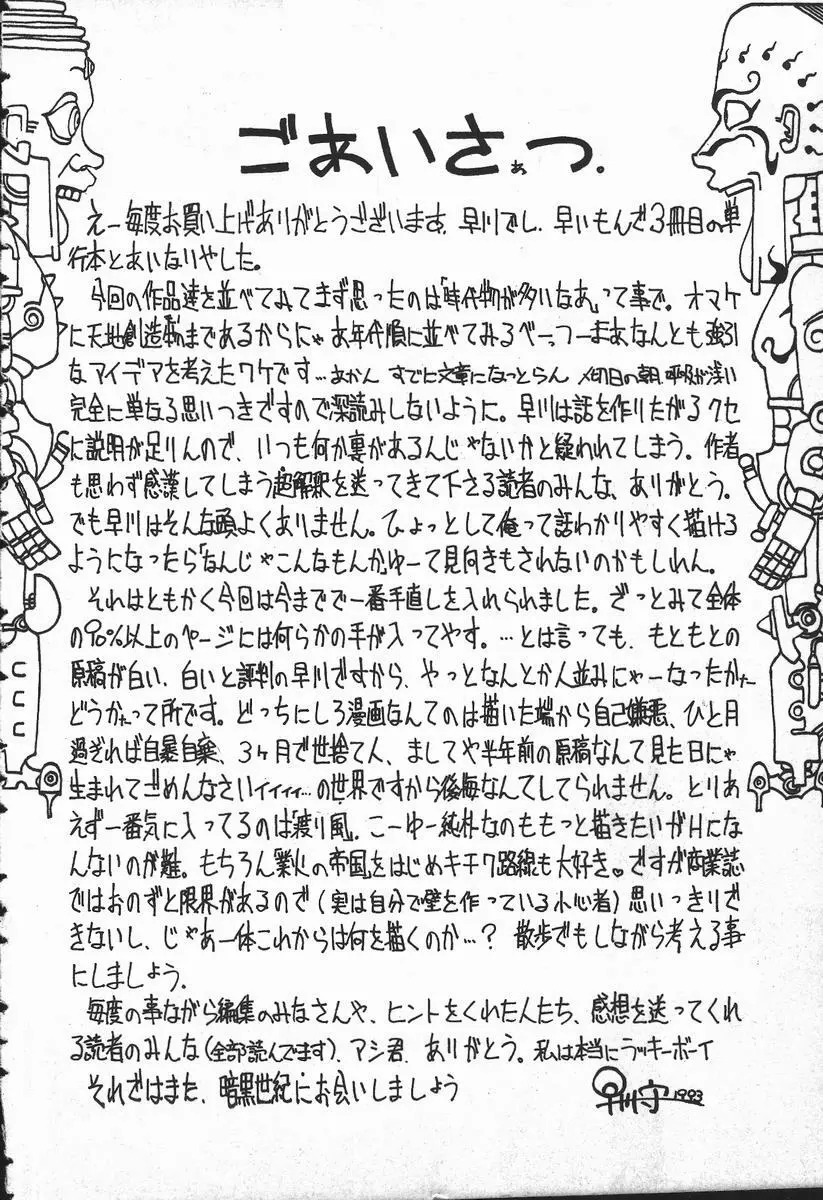 ごあいさぁつ.
えー毎度お買い上げありがとうございます。早川でし。早いもんで3冊目の単
行本とあいなりやした。
今回の作品達を並べてみてまず思ったのは「時代物が多いなあ」って事で。オマケ
に天地創造まであるからにゃお年代順に並べてみるべーっつーまあなんとも強引
なアイデアを考えたワケです…あかん すでに文章になっとらん 〆切日の朝 眠りが浅い
完全に単なる思いつきですので深読みしないように。早川は話を作りたがるクセ
に説明が足りんので、いつも何か裏があるんじゃないかと疑われてしまう。作者
も思わず感嘆してしまう超解釈を送ってきて下さる読者のみんな、ありがとう。
でも早川はそんな頭よくありません。ひょっとして俺って話わかりやすく描ける
ようになったら「なんじゃこんなもんか」ゆーて見向きもされないのかもしれん。
それはともかく今回は今までで一番手直しを入れられました。ざっとみて全体
の90%以上のページには何らかの手が入ってやす。…とは言っても、もともとの
原稿が白い、白いと評判の早川ですから、やっとなんとか人並みにゃーなったかなー
どうかなって所です。どっちにしろ漫画なんてのは描いた端から自己嫌悪、ひと月
過ぎれば自暴自棄、3ヶ月で世捨て人、ましてや半年前の原稿なんて見た日にゃ
生まれてごめんなさいィィィィ…の世界ですから後悔なんてしてられません。とりあ
えず一番気に入ってるのは「渡り風」。こーゆー純朴なのももっと描きたいがHにな
んないのが難。もちろん「業火の帝国」をはじめキチク路線も大好き♥ですが商業誌
ではおのずと限界があるので(実は自分で壁を作っている小心者)思いっきりで
きないし、じゃあ一体これからは何を描くのか…? 散歩でもしながら考える事
にしましょう。
毎度の事ながら編集のみなさんや、ヒントをくれた人たち、感想を送ってくれ
る読者のみんな(全部読んでます)、アシ君、ありがとう。私は本当にラッキーボーイ
それではまた、暗黒世紀にお会いしましょう
早川守 1993